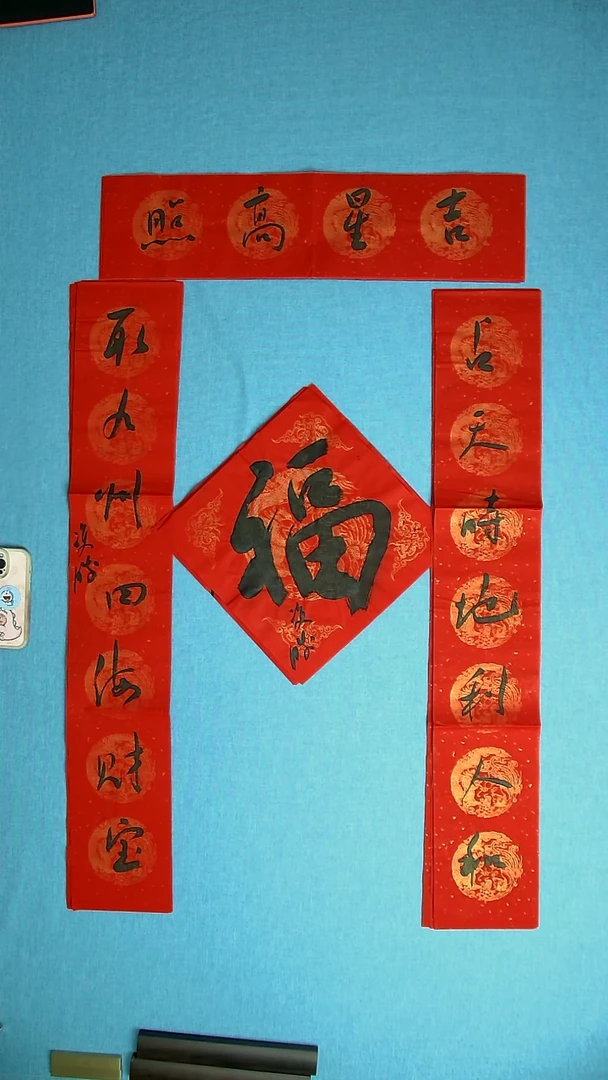 吉星高照
占天時地利人和
取九州四海财宝
福